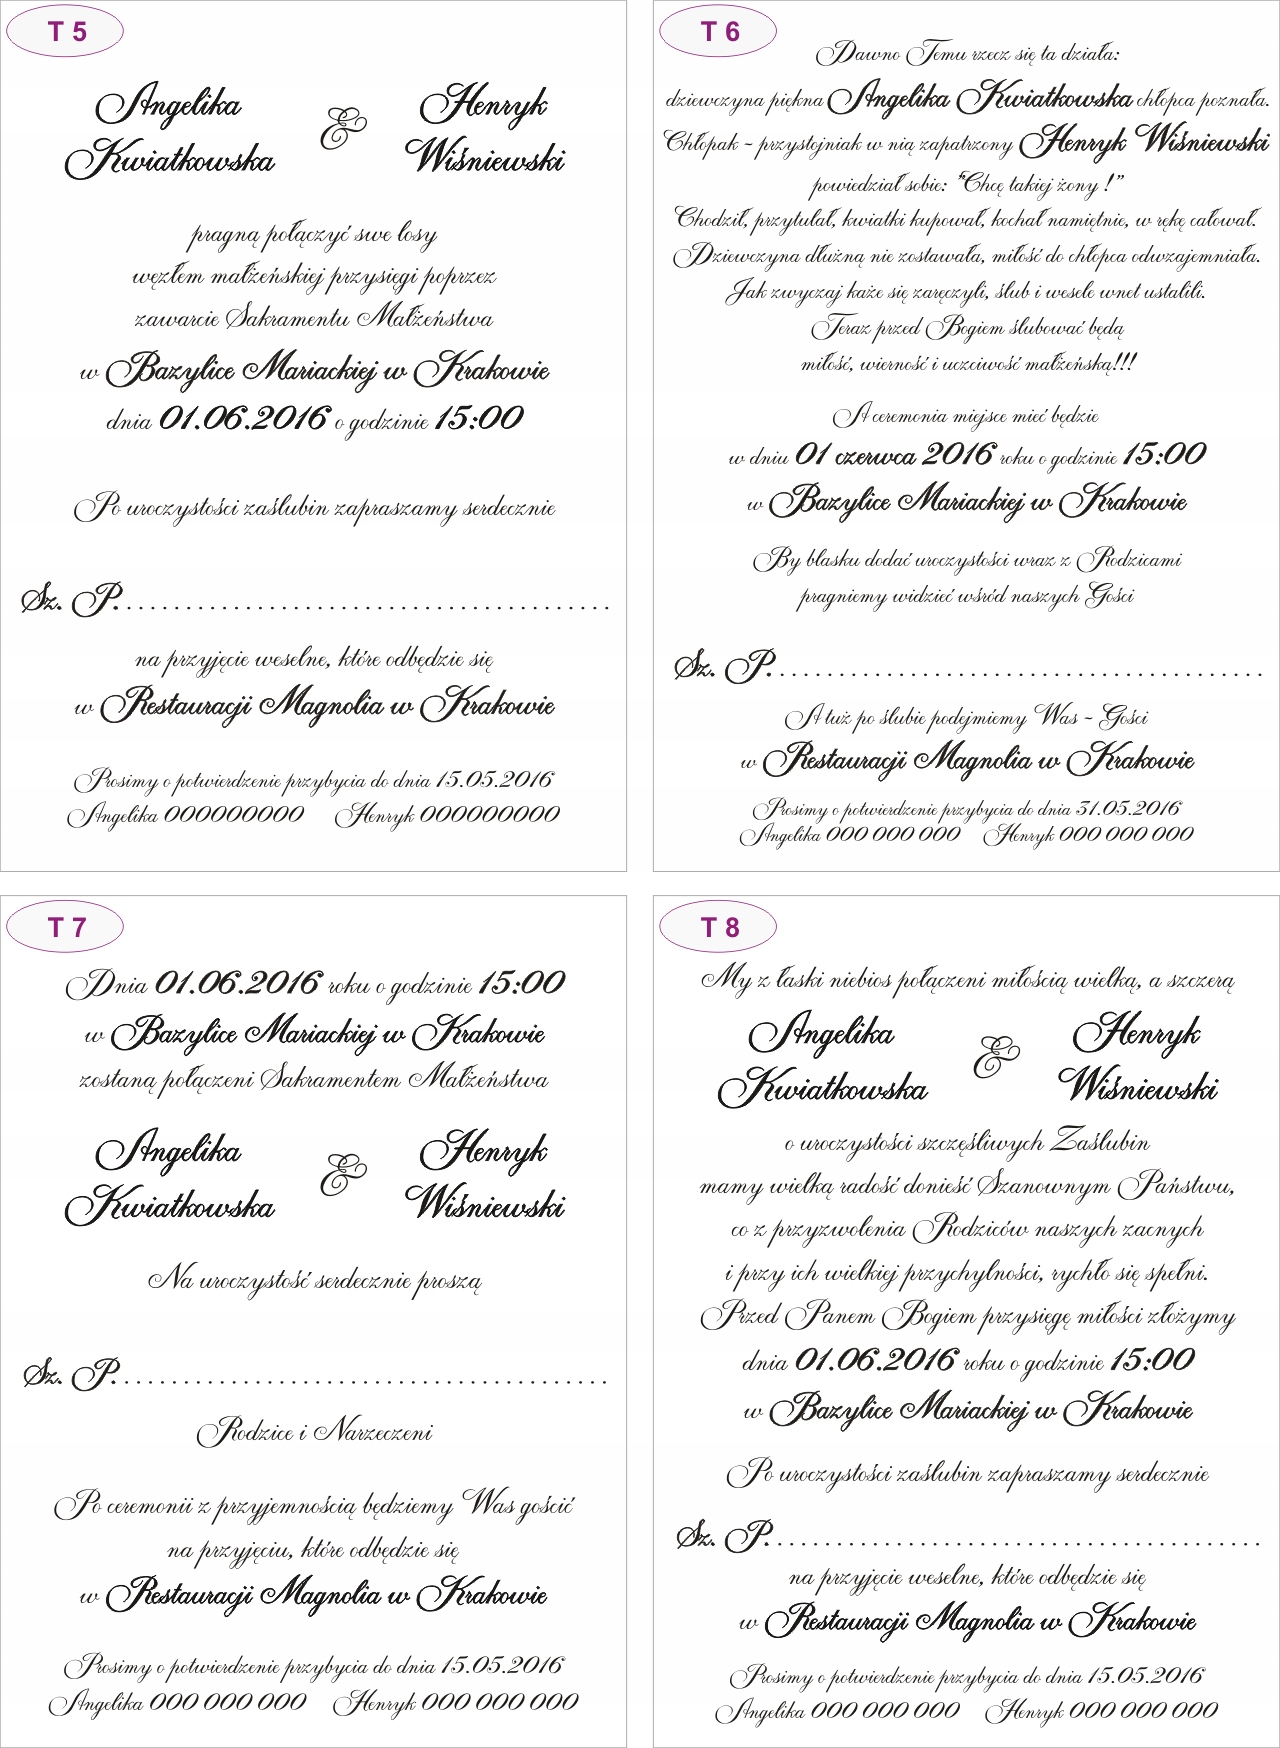 T 5
Angelika
Kwiatkowska
&
Henryk
Wiśniewski
pragną połączyć swe losy
węzłem małżeńskiej przysięgi poprzez
zawarcie Sakramentu Małżeństwa
w Bazylice Mariackiej w Krakowie
dnia 01.06.2016 o godzinie 15:00
Po uroczystości zaślubin zapraszamy serdecznie
Sz. P. . . . . . . . . . . . . . . . . . . . . . . . . . . . . . . . . . . . . . . . .
na przyjęcie weselne, które odbędzie się
w Restauracji Magnolia w Krakowie
Prosimy o potwierdzenie przybycia do dnia 15.05.2016
Angelika 000000000 Henryk 000000000
T 6
Dawno Temu rzecz się ta działa:
dziewczyna piękna Angelika Kwiatkowska chłopca poznała.
Chłopak - przystojniak w nią zapatrzony Henryk Wiśniewski
powiedział sobie: "Chcę takiej żony !"
Chodził, przytulał, kwiatki kupował, kochał namiętnie, w rękę całował.
Dziewczyna dłużną nie zostawała, miłość do chłopca odwzajemniała.
Jak zwyczaj każe się zaręczyli, ślub i wesele wnet ustalili.
Teraz przed Bogiem ślubować będą
miłość, wierność i uczciwość małżeńską!!!
A ceremonia miejsce mieć będzie
w dniu 01 czerwca 2016 roku o godzinie 15:00
w Bazylice Mariackiej w Krakowie
By blasku dodać uroczystości wraz z Rodzicami
pragniemy widzieć wśród naszych Gości
Sz. P. . . . . . . . . . . . . . . . . . . . . . . . . . . . . . . . . . . . . . . . .
A tuż po ślubie podejmiemy Was - Gości
w Restauracji Magnolia w Krakowie
Prosimy o potwierdzenie przybycia do dnia 31.05.2016
Angelika 000 000 000 Henryk 000 000 000
T 7
Dnia 01.06.2016 roku o godzinie 15:00
w Bazylice Mariackiej w Krakowie
zostaną połączeni Sakramentem Małżeństwa
Angelika
Kwiatkowska
&
Henryk
Wiśniewski
Na uroczystość serdecznie proszą
Sz. P. . . . . . . . . . . . . . . . . . . . . . . . . . . . . . . . . . . . . . . . .
Rodzice i Narzeczeni
Po ceremonii z przyjemnością będziemy Was gościć
na przyjęciu, które odbędzie się
w Restauracji Magnolia w Krakowie
Prosimy o potwierdzenie przybycia do dnia 15.05.2016
Angelika 000 000 000 Henryk 000 000 000
T 8
My z łaski niebios połączeni miłością wielką, a szczerą
Angelika
Kwiatkowska
&
Henryk
Wiśniewski
o uroczystości szczęśliwych Zaślubin
mamy wielką radość donieść Szanownym Państwu,
co z przyzwolenia Rodziców naszych zacnych
i przy ich wielkiej przychylności, rychło się spełni.
Przed Panem Bogiem przysięgę miłości złożymy
dnia 01.06.2016 roku o godzinie 15:00
w Bazylice Mariackiej w Krakowie
Po uroczystości zaślubin zapraszamy serdecznie
Sz. P. . . . . . . . . . . . . . . . . . . . . . . . . . . . . . . . . . . . . . . . .
na przyjęcie weselne, które odbędzie się
w Restauracji Magnolia w Krakowie
Prosimy o potwierdzenie przybycia do dnia 15.05.2016
Angelika 000 000 000 Henryk 000 000 000